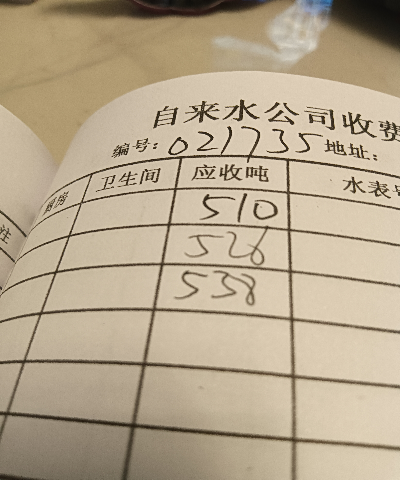 自来水公司收费
编号: 021735 地址:
厨房 卫生间 应收吨 水表
510
526
538
注